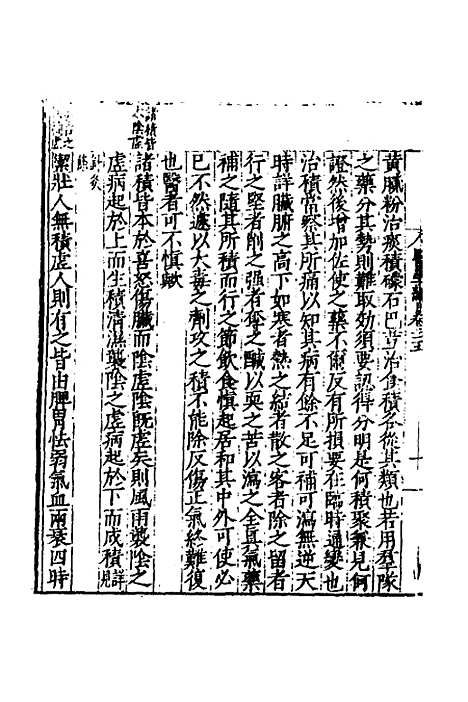 黃臈粉治痰積礞石巴荳治食積各從其類也若用羣隊
之藥分其勢則難取効須要認得分明是何積聚兼見何
證然後增加佐使之藥不爾反有所損要在臨時通變也
治積當察其所痛以知其病有餘不足可補可瀉無逆天
時詳臟腑之高下如寒者熱之結者散之客者除之留者
行之堅者削之强者奪之鹹以耎之苦以瀉之全真氣藥
補之隨其所積而行之節飲食慎起居和其中外可使必
已不然遽以大毒之劑攻之積不能除反傷正氣終難復
也醫者可不慎歟
諸積皆本於喜怒傷臟而陰虛陰既虛矣則風雨襲陰之
虛病起於上而生積清濕襲陰之虛病起於下而成積詳見
鍼灸
潔壯人無積虛人則有之皆由脾胃怯弱氣血兩衰四時